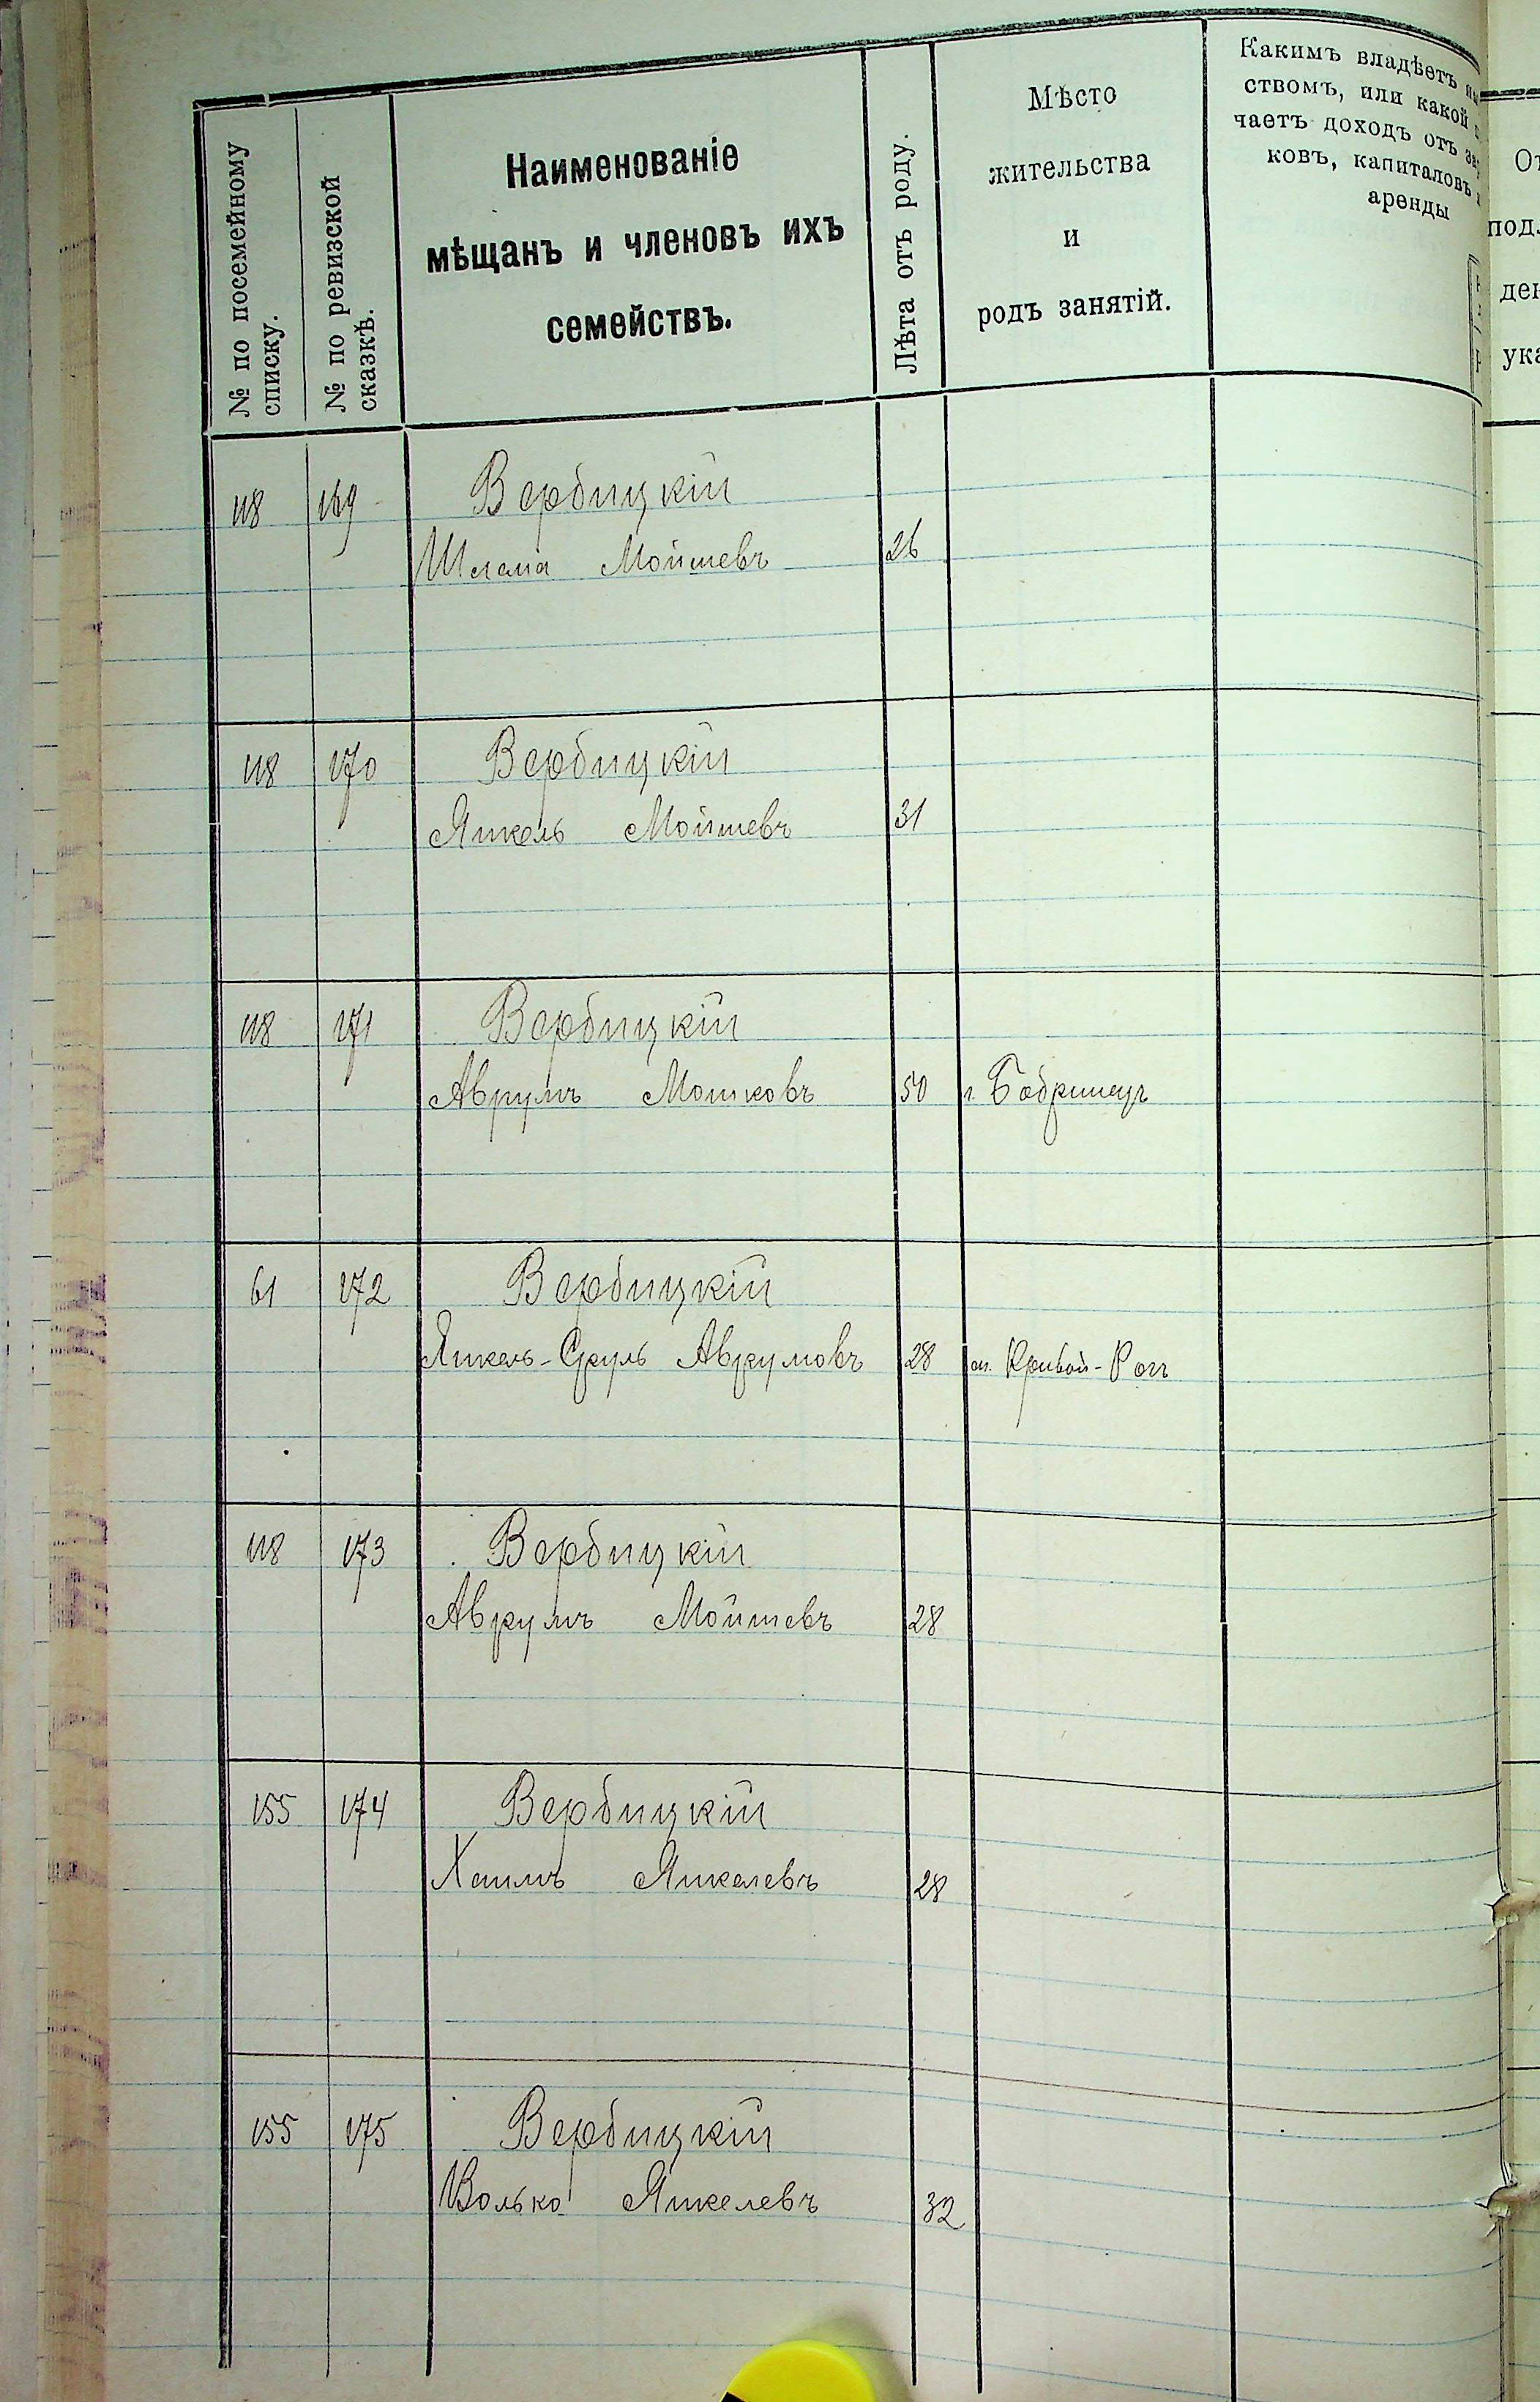 № по посемейному списку.
№ по ревизской сказкѣ.
Наименованіе
мѣщанъ и членовъ ихъ
семействъ.
Лѣта отъ роду.
Мѣсто
жительства
и
родъ занятій.
Какимъ владѣетъ
ствомъ, или какой
чаетъ доходъ отъ
ковъ, капиталовъ
аренды
118 169 Вербицкій
Шлема Мойшевъ 26
118 170 Вербицкій
Янкель Мойшевъ 31
118 171 Вербицкій
Аврумъ Мошковъ 50 г. Бобринецъ
61 172 Вербицкій
Янкель-Сруль Аврумовъ 28 м. Кривой-Рогъ
118 173 Вербицкій
Аврумъ Мойшевъ 28
155 174 Вербицкій
Хаимъ Янкелевъ 28
155 175 Вербицкій
Волько Янкелевъ 32